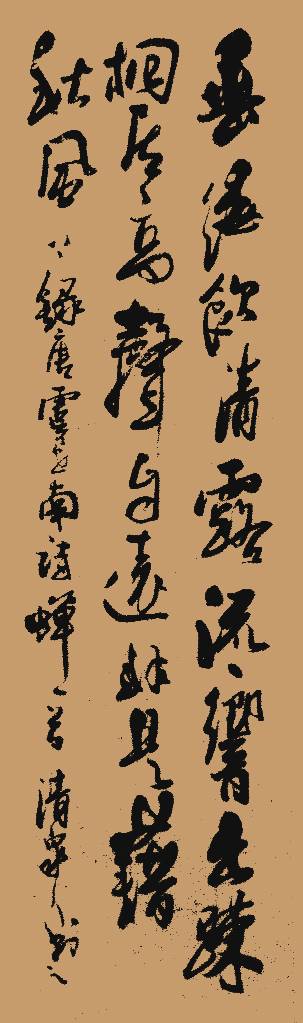 垂緌飲清露流響出疎
桐居高聲自遠非是藉
秋風 録唐虞世南詩蟬一首 清泉